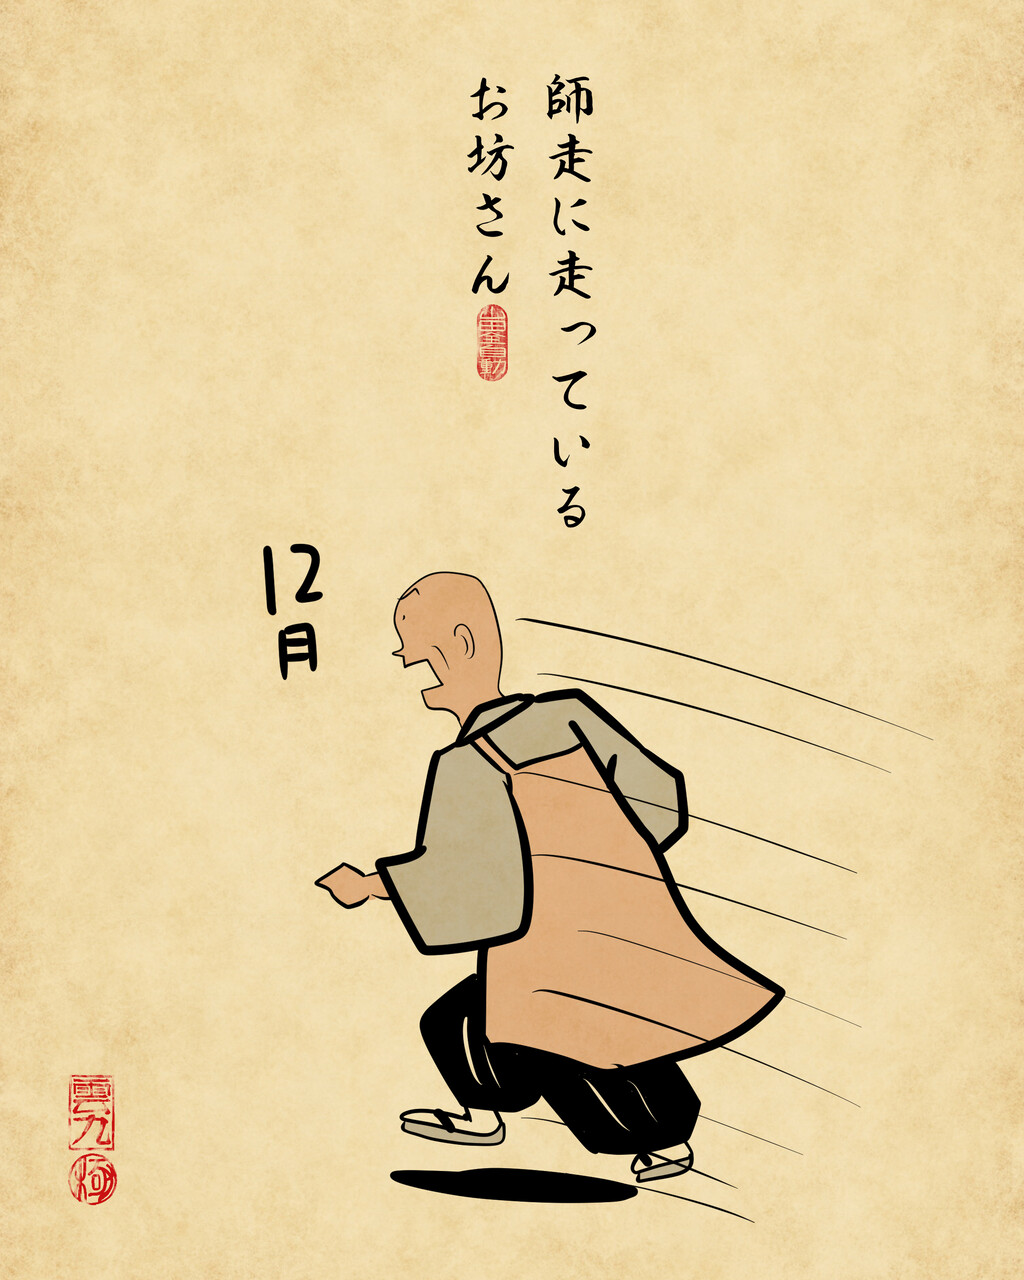 師走に走っている
お坊さん
12
月